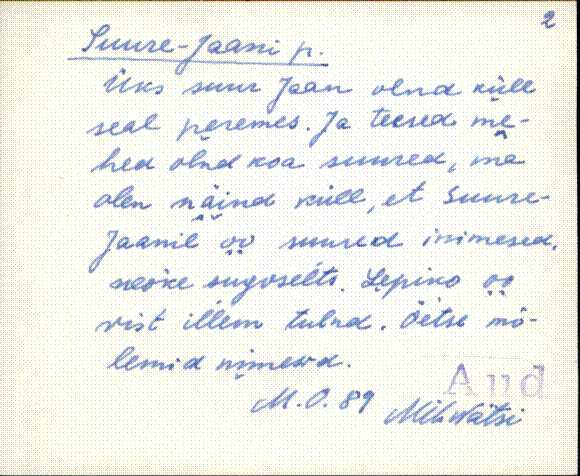 2
Suure-Jaani p.
Üks suur Jaan olnd küll
seal peremes. Ja teesed me-
hed olnd koa suured, ma
olen näind küll, et Suure-
Jaanil oo suured inimesed,
neoke sugoselts. Lepiko oo
vist illem tulnd. Öetse mö-
lemid nimesid.
Aud
M. O. 89